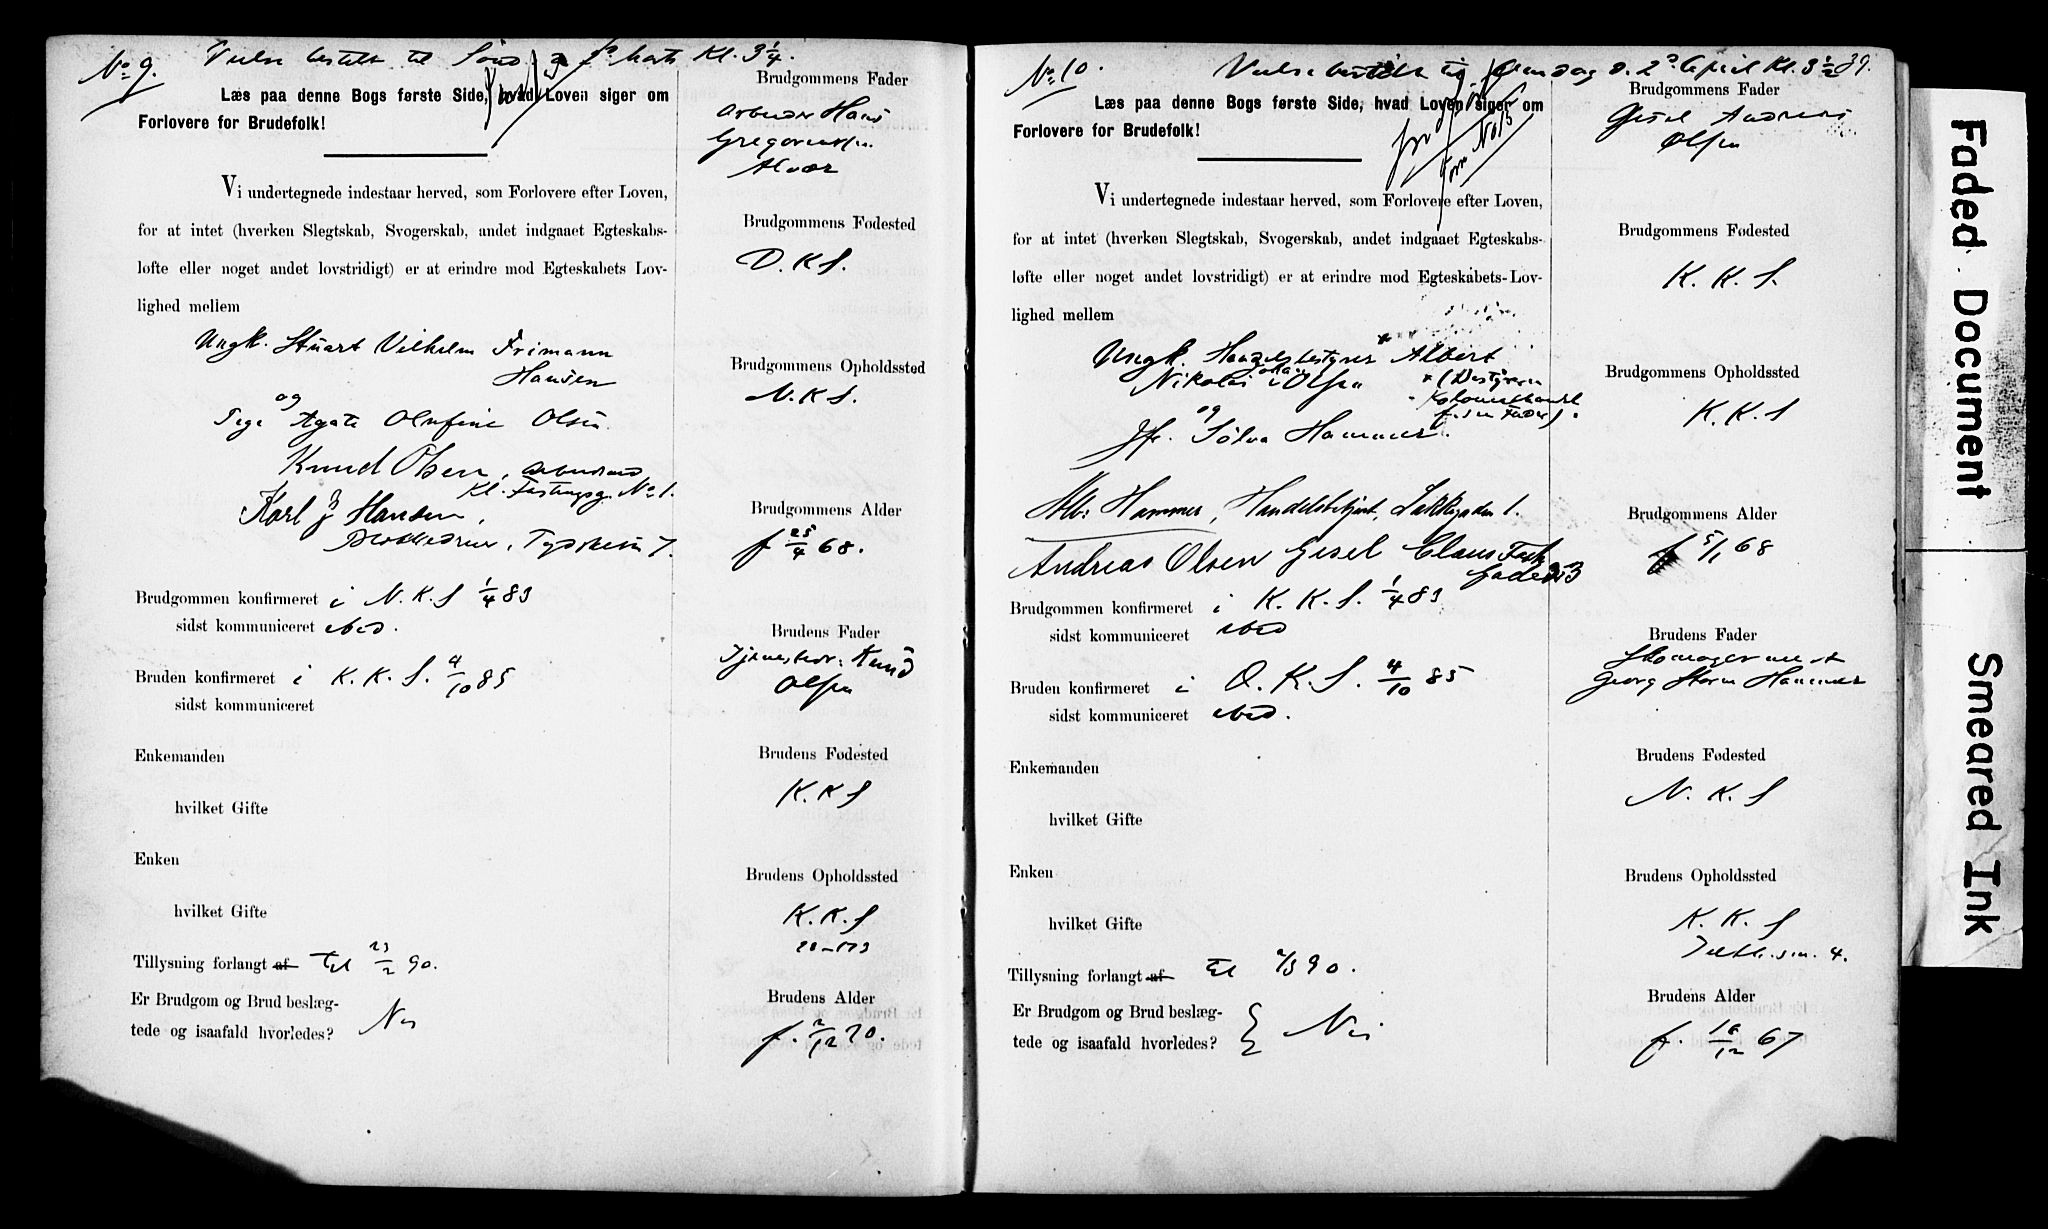 No 9. Vielse bestilt til Sønd 2 Marts Kl. 3 1/4.
Læs paa denne Bogs første Side, hvad Loven siger om
Forlovere for Brudefolk!
Vi undertegnede indestaar herved, som Forlovere efter Loven,
for at intet (hverken Slegtskab, Svogerskab, andet indgaaet Egteskabs-
løfte eller noget andet lovstridigt) er at erindre mod Egteskabets Lov-
lighed mellem
Ungk. Stuart Vilhelm Frimann
Hansen
og
Pige Agate Olufine Olsen.
Knud Olsen, Arbeidsmd
Kl. Festningsg. No 1.
Karl J Hansen,
Tydskein 7.
Brudgommen konfirmeret i N. K. S 1/4 83
sidst kommuniceret ibid.
Bruden konfirmeret i K. K. S. 4/10 85
sidst kommuniceret
Enkemanden
hvilket Gifte
Enken
hvilket Gifte
Tillysning forlangt af til 23/2 90.
Er Brudgom og Brud beslæg-
tede og isaafald hvorledes? Nei
Brudgommens Fader
Arbeider Hans
Gregoriussen
Alvær
Brudgommens Fødested
D. K S.
Brudgommens Opholdssted
N. K S.
Brudgommens Alder
f 25/4 68.
Brudens Fader
Knud
Olsen
Brudens Fødested
K. K S
Brudens Opholdssted
K. K. S
Brudens Alder
f. 2/12 70.
No 10. Vielse bestilt til Onsdag d. 2 April Kl. 3 1/2 39.
Læs paa denne Bogs første Side, hvad Loven siger om
Forlovere for Brudefolk!
Vi undertegnede indestaar herved, som Forlovere efter Loven,
for at intet (hverken Slegtskab, Svogerskab, andet indgaaet Egteskabs-
løfte eller noget andet lovstridigt) er at erindre mod Egteskabets Lov-
lighed mellem
Ungk. Handelsbestyrer Albert
Nikolai Johan Olsen
x (Bestyrer
Kolonialhandel
for sin Fader).
og
Jfr. Sølva Hammer.
Alb: Hammer, Handelsbetjent, Lækkegaden 1.
Andreas Olsen Gjesel Claus
Brudgommen konfirmeret i K. K. S. 1/4 83
sidst kommuniceret ibid
Bruden konfirmeret i D. K. S. 4/10 85
sidst kommuniceret ibid.
Enkemanden
hvilket Gifte
Enken
hvilket Gifte
Tillysning forlangt af til 2/3 90.
Er Brudgom og Brud beslæg-
tede og isaafald hvorledes? Nei
Brudgommens Fader
Gjesel Andreas
Olsen
Brudgommens Fødested
K. K. S.
Brudgommens Opholdssted
K. K. S
Brudgommens Alder
f 5/1 68
Brudens Fader
Skomagermest
Georg Storm Hammer
Brudens Fødested
N. K. S
Brudens Opholdssted
K. K. S
Brudens Alder
f. 18/12 67
Faded Document
Smeared Ink